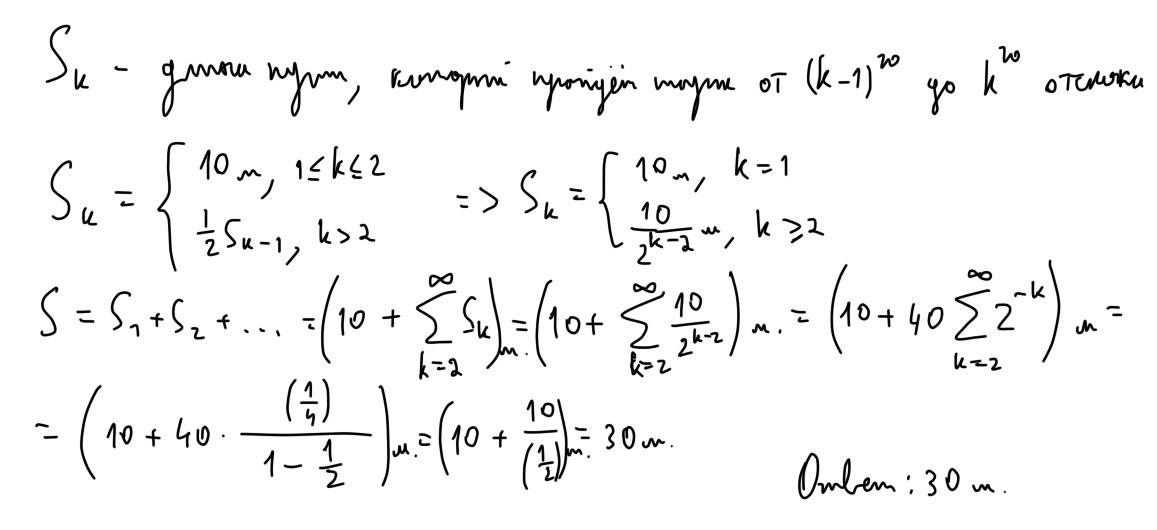 S_k - длина пути, который пройдёт шарик от (k-1)^го до k^го отскока
S_k = { 10 м, 1≤k≤2 ; 1/2 S_{k-1}, k>2 => S_k = { 10 м, k=1 ; 10/2^{k-2} м, k⩾2
S = S_1 + S_2 + ... = (10 + ∑_{k=2}^{∞} S_k) м. = (10 + ∑_{k=2}^{∞} 10/2^{k-2}) м. = (10 + 40 ∑_{k=2}^{∞} 2^{-k}) м =
= (10 + 40 · (1/4)/(1 - 1/2)) м. = (10 + 10/(1/2)) м. = 30 м.
Ответ: 30 м.